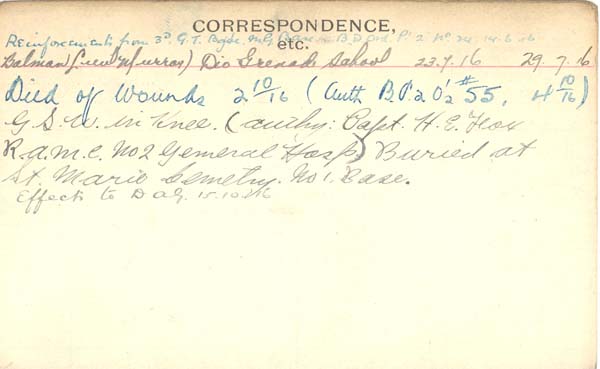 CORRESPONDENCE,
etc.
Reinforcements from 3rd G.T. Bgde. M.G. Base B.D. Ord. Pt 2 No. 24. 14.6.16
Balman (Lieut Murray) Div Grenade School 23.7.16 29.7.16
Died of Wounds 2 10/16 (Auth B.P.2 O's # 55, 4 10/16)
G.S.W. in Knee. (authy: Capt. H.E.
R.A.M.C. No 2 General Hosp) Buried at
St. Marie Cemetry. No 1. Base.
Effects to D AG. 15.10.16